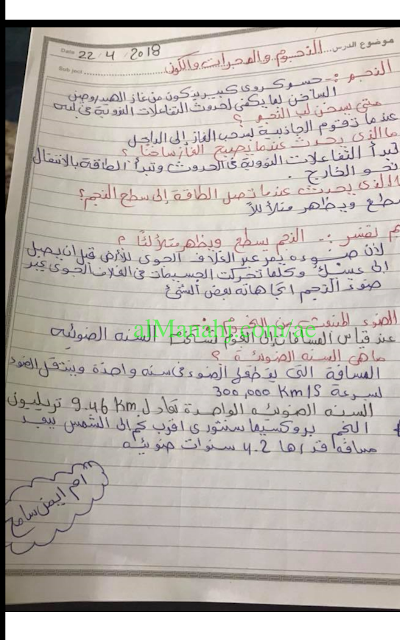 Date 22 / 4 / 2018
موضوع الدرس ... النجوم والمجرات والكون
النجم :- جسم كروي كبير يتكون من غاز الهيدروجين
الساخن لما يكفي لحدوث التفاعلات النووية في لبه
متى سخن لب النجم ؟
عندما تقوم الجاذبية لسحب الغاز إلى الداخل
ما الذي يحدث عندما يصبح الغاز ساخناً ؟
تبدأ التفاعلات النووية في الحدوث وتبدأ الطاقة بالانتقال
نحو الخارج .
ما الذي يحدث عندما تصل الطاقة إلى سطح النجم ؟
سطع ويظهر متلألأً
تفسر :- النجم يسطع ويظهر متلألئاً ؟
لأن ضوءه يمر عبر الغلاف الجوي للأرض قبل أن يصل
إلى عينيك وكلما تحركت الجسيمات في الغلاف الجوي غير
ضوء النجم اتجاهاته بعض الشيء
الضوء المنبعث من النجوم :-
عند قياس المسافات إلى النجوم السنة الضوئية
alManahj.com.ae
ما هي السنة الضوئية ؟
المسافة التي يقطعها الضوء في سنة واحدة وينتقل الضوء
لسرعة 300,000 Km/s
السنة الضوئية الواحدة تعادل 9.46 Km تريليون
النجم بروكسيما سنتوري أقرب نجم إلى الشمس يبعد
مسافة قدرها 4.2 سنوات ضوئية
أم أيمن سامح